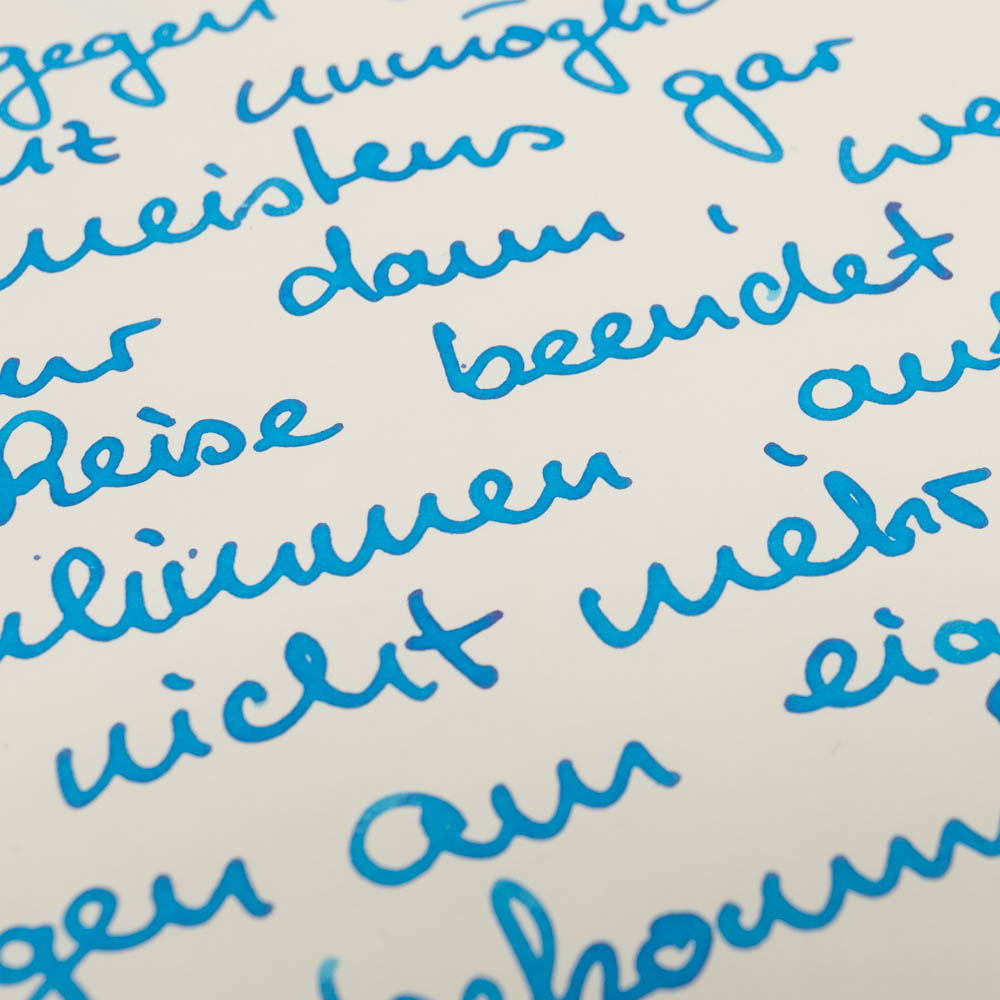 gegen
nz unmöglic
meistens gar
ur dann we
Reise beendet
limmen au
nicht mehr
gen an eig
bekomm